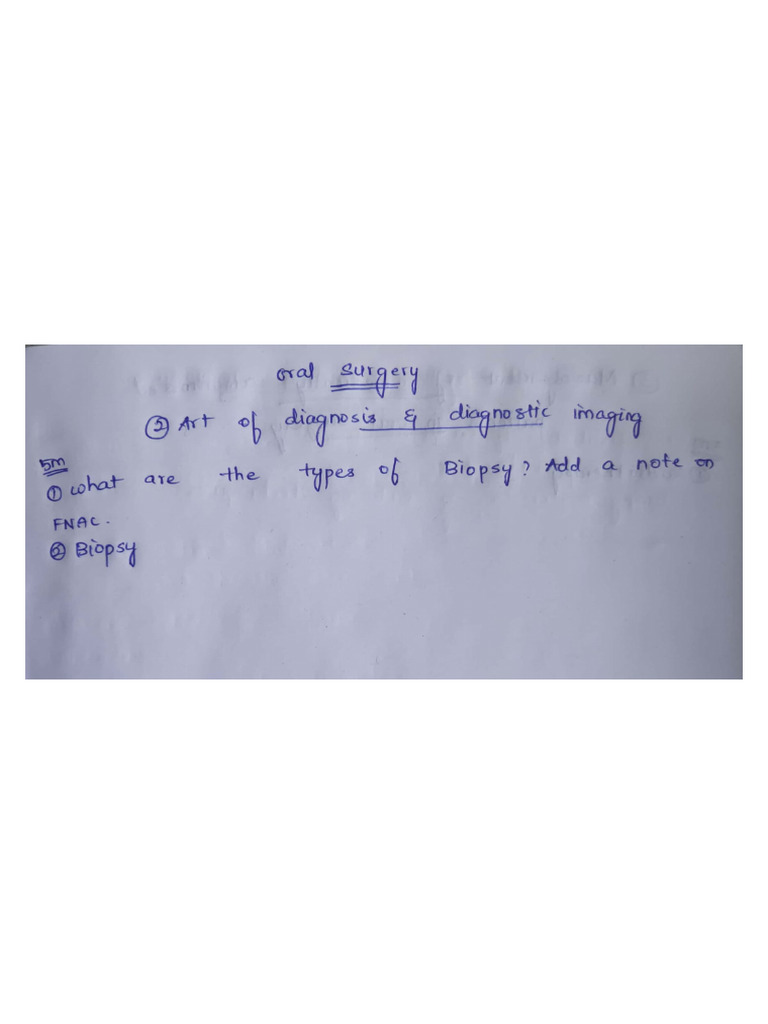 oral surgery
② Art of diagnosis & diagnostic imaging
5m
① what are the types of Biopsy? Add a note on
FNAC.
② Biopsy